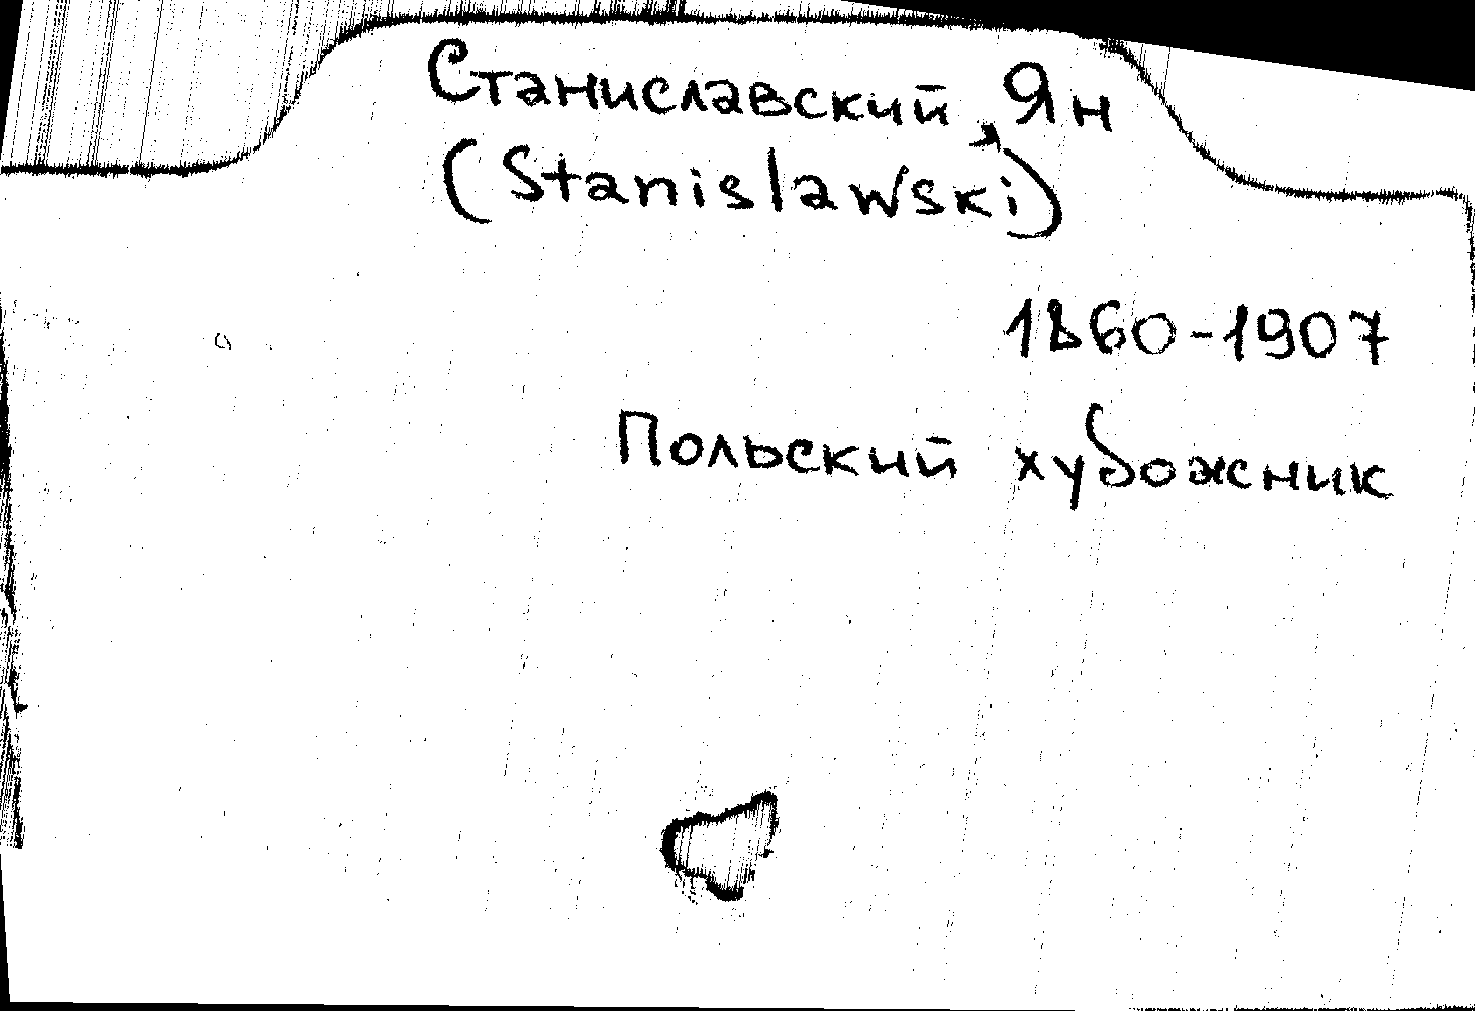 Станиславский, Ян
(Stanislawski)
1860-1907
Польский художник